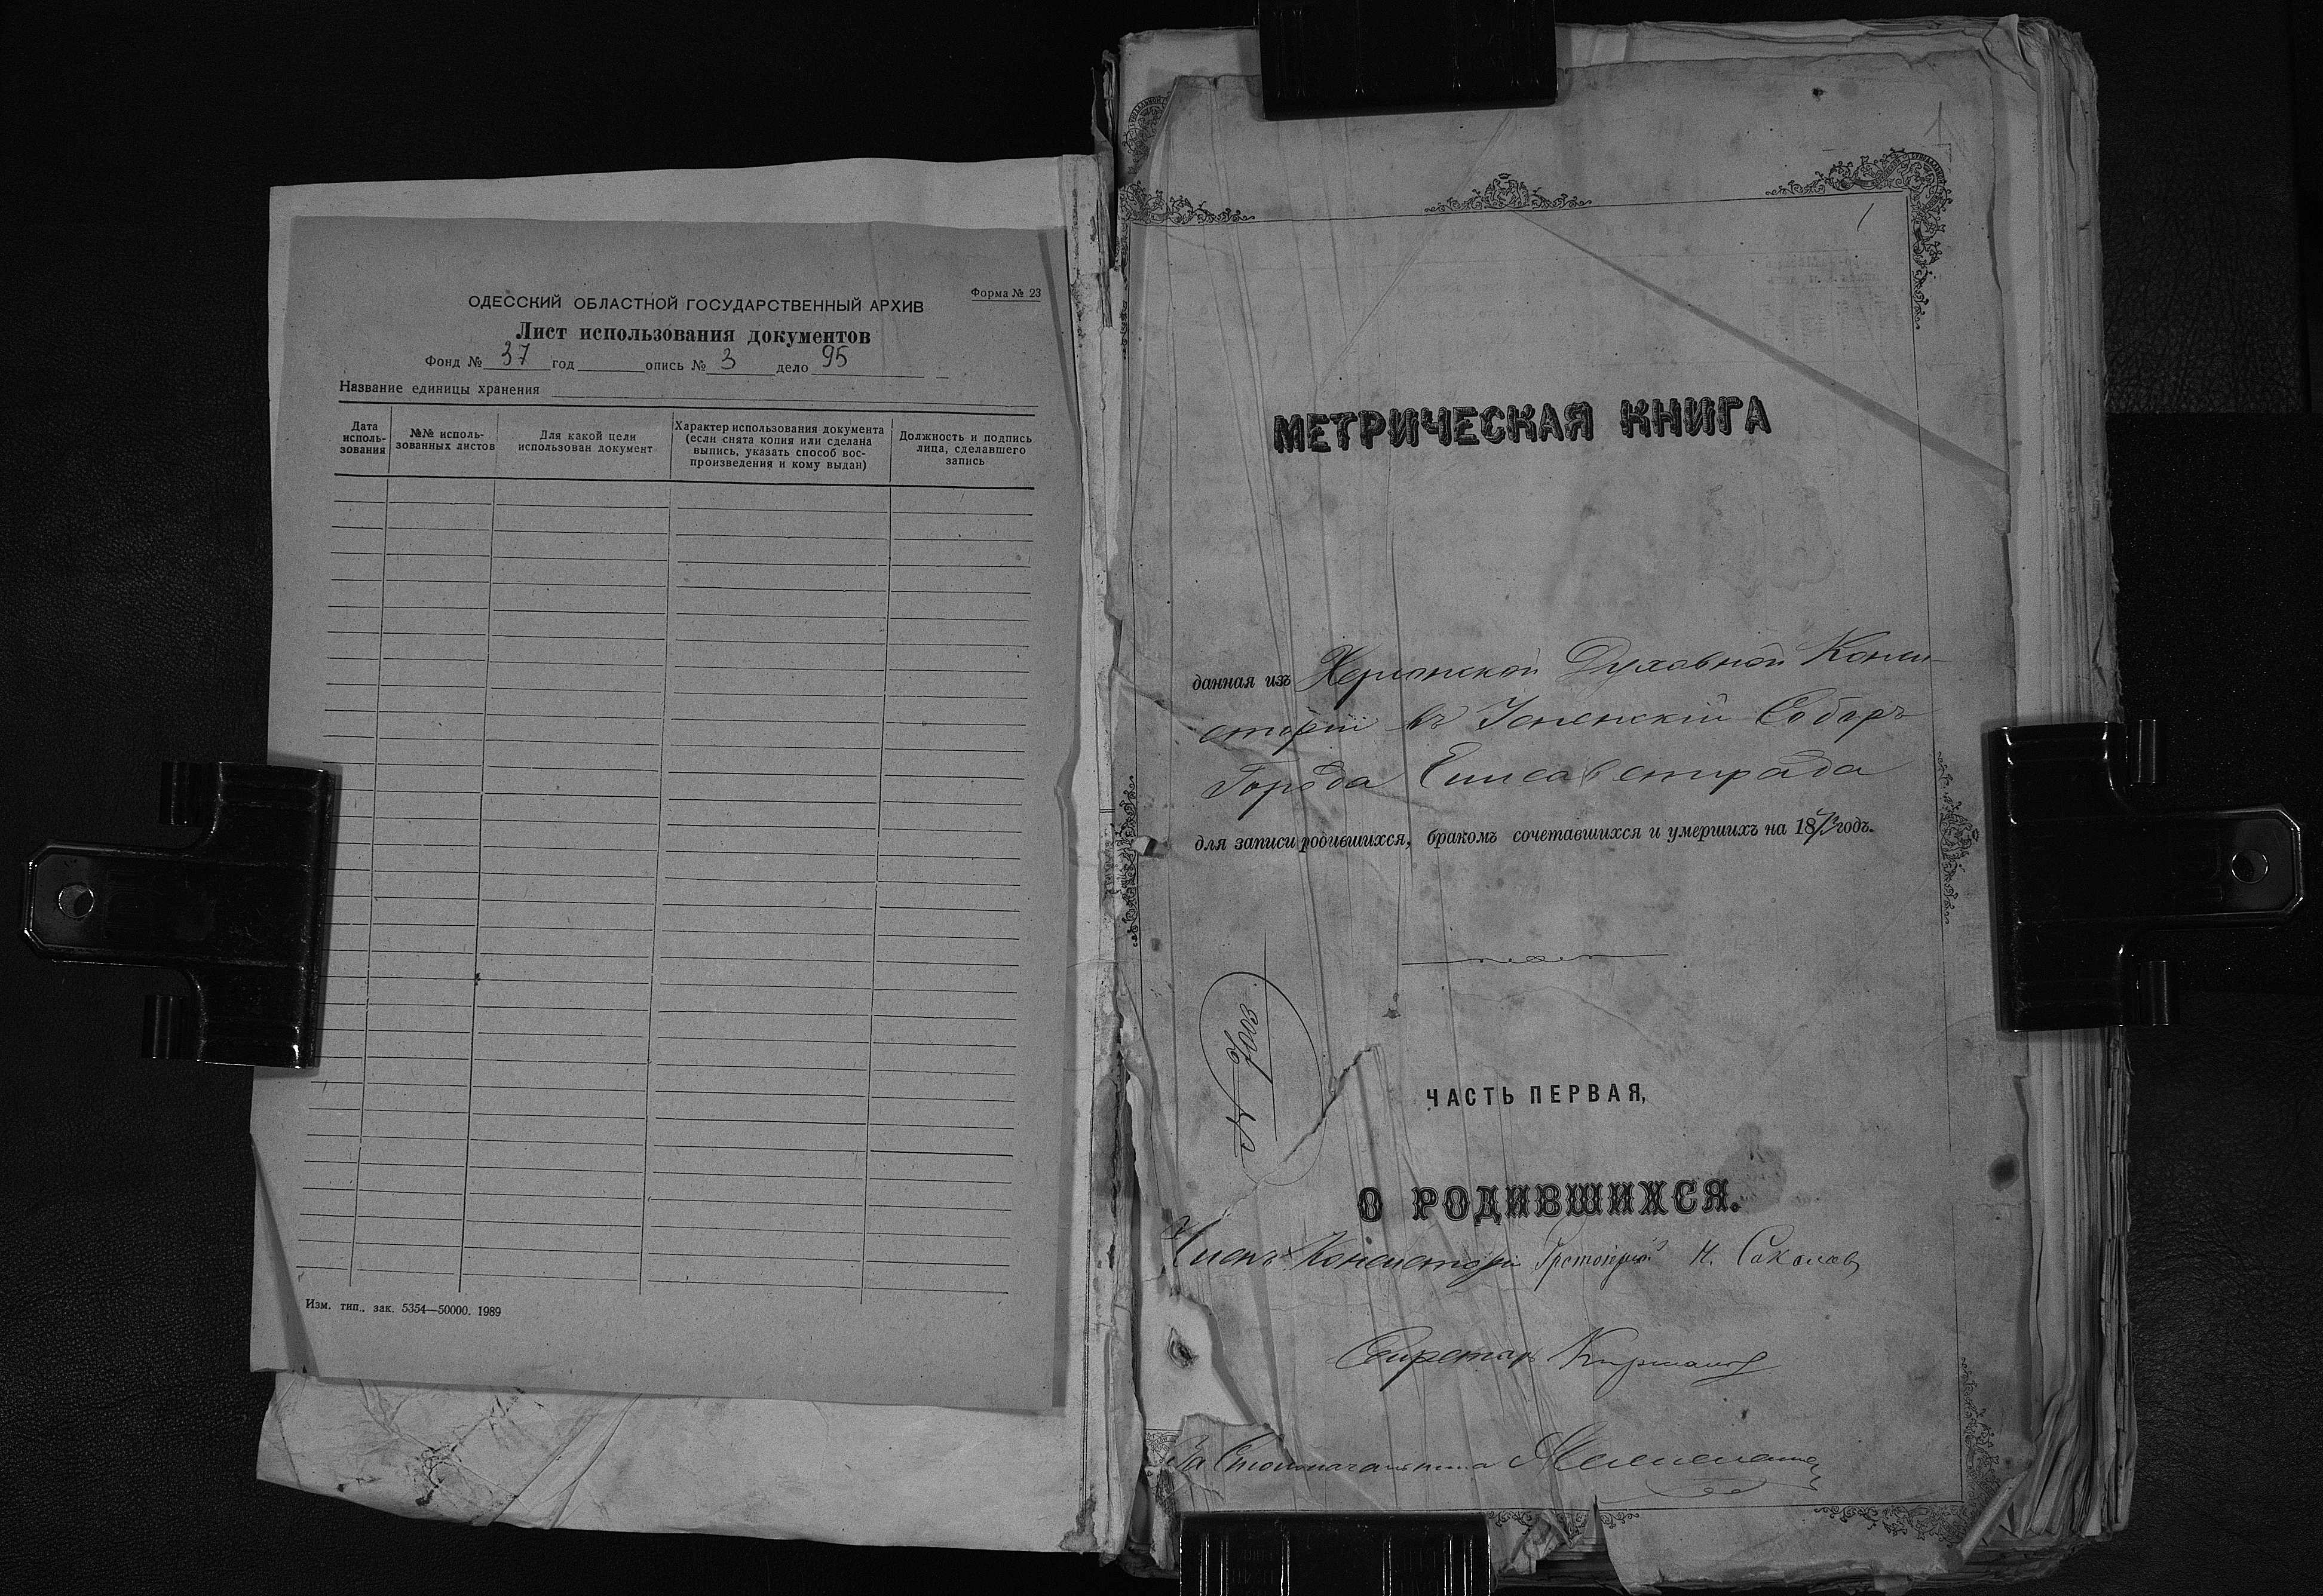 Форма № 23
ОДЕССКИЙ ОБЛАСТНОЙ ГОСУДАРСТВЕННЫЙ АРХИВ
Лист использования документов
Фонд № 37 год опись № 3 дело 95
Название единицы хранения
Дата исполь-
зования
№№ исполь-
зованных листов
Для какой цели
использован документ
Характер использования документа
(если снята копия или сделана
выпись, указать способ вос-
произведения и кому выдан)
Должность и подпись
лица, сделавшего
запись
Изм. тип., зак. 5354—50000. 1989
1
МЕТРИЧЕСКАЯ КНИГА
данная изъ Херсонской Духовной Конси-
сторіи въ Успенскій Соборъ
Города Елисаветграда
для записи родившихся, бракомъ сочетавшихся и умершихъ на 18 годъ.
№ 7003
ЧАСТЬ ПЕРВАЯ,
О РОДИВШИХСЯ.
Членъ Консисторіи Протоіерей Н. Соколов
Секретарь
За Столоначальника